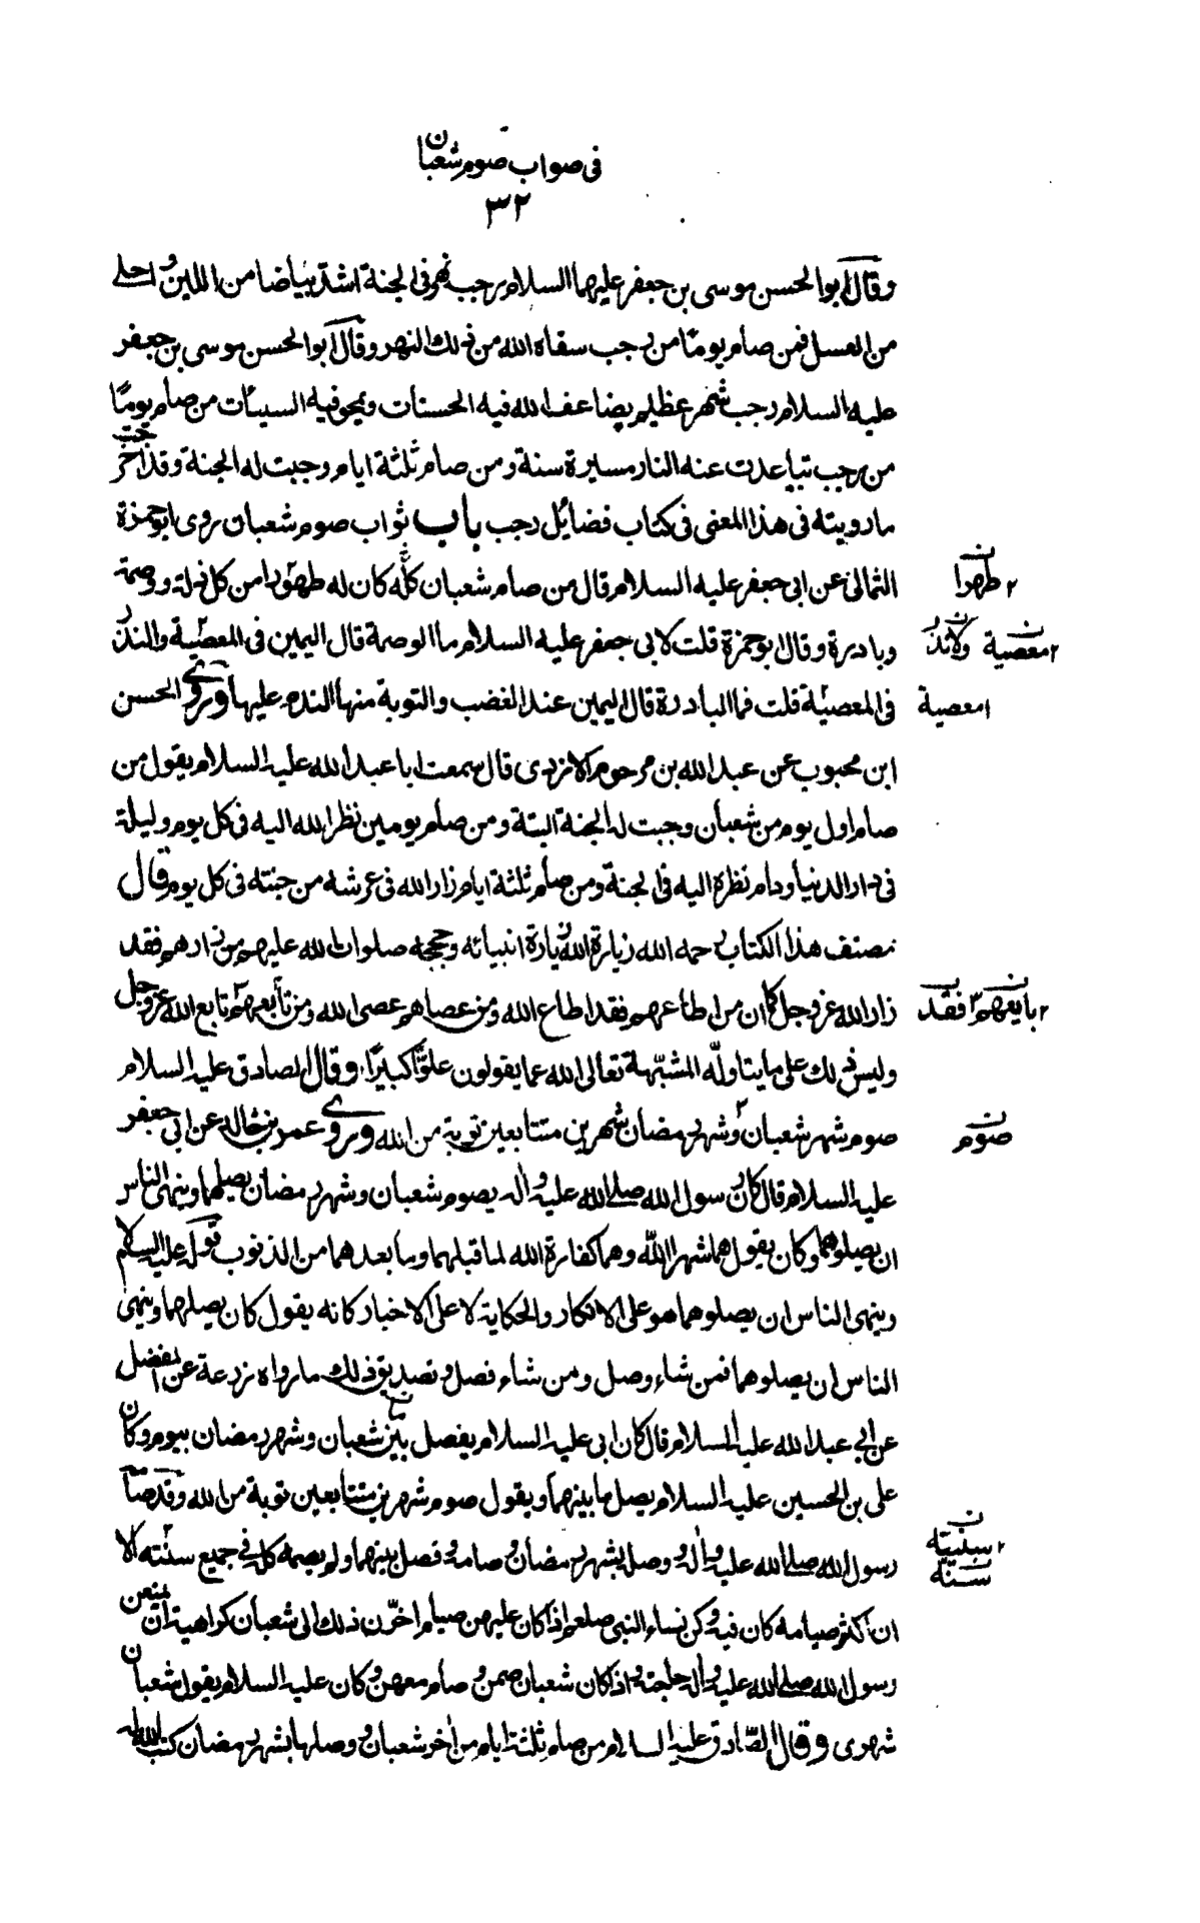 فى صواب صوم شعبان
٣٢
وقال ابوالحسن موسى بن جعفر عليهما السلام رجب نهر فى الجنة اشد بياضا من اللبن و احلى
من العسل فمن صام يومًا من رجب سقاه الله من ذلك النهر وقال ابوالحسن موسى بن جعفر
عليه السلام رجب شهر عظيم يضاعف الله فيه الحسنات ويمحو فيه السيئات من صام يومًا
من رجب تباعدت عنه النار مسيرة سنة ومن صام ثلثة ايام وجبت له الجنة وقد اخرجت
ما رويته فى هذا المعنى فى كتاب فضائل رجب باب ثواب صوم شعبان روى ابوحمزة
الثمالى عن ابى جعفر عليه السلام قال من صام شعبان كله كان له طهورا من كل زلة ووصمة
٢ طهرا
وبادرة وقال ابوحمزة قلت لابى جعفر عليه السلام ما الوصمة قال اليمين فى المعصية والنذر
٢ معصية ولا نذر
فى المعصية قلت فما البادرة قال اليمين عند الغضب والتوبة منها الندم عليها وروى الحسن
ا معصية
ابن محبوب عن عبدالله بن مرحوم الازدى قال سمعت ابا عبدالله عليه السلام يقول من
صام اول يوم من شعبان وجبت له الجنة البتة ومن صام يومين نظر الله اليه فى كل يوم وليلة
فى دار الدنيا ودام نظره اليه فى الجنة ومن صام ثلثة ايام زار الله فى عرشه من جنته فى كل يوم قال
مصنف هذا الكتاب رحمه الله زيارة الله زيارة انبيائه وحججه صلوات الله عليهم من زارهم فقد
زار الله عزوجل كما ان من اطاعهم فقد اطاع الله ومن عصاهم عصى الله ومن تابعهم تابع الله عزوجل
٢ بايعهم ٣ فقد
وليس ذلك على ما يتاوله المشبّهة تعالى الله عما يقولون علوًّا كبيرًا وقال الصادق عليه السلام
صوم شهر شعبان وشهر رمضان شهرين متتابعين توبة من الله وروى عمرو بن خالد عن ابى جعفر
صوم
عليه السلام قال كان رسول الله صلى الله عليه و اله يصوم شعبان وشهر رمضان يصلهما وينهى الناس
ان يصلوهما وكان يقول هما شهرا الله وهما كفارة الله لما قبلهما وما بعدهما من الذنوب قوله عليه السلام
وينهى الناس ان يصلوهما هو على الانكار والحكاية لا على الاخبار كانه يقول كان يصلهما وينهى
الناس ان يصلوهما فمن شاء وصل ومن شاء فصل وتصديق ذلك ما رواه زرعة عن المفضل
عن ابى عبدالله عليه السلام قال كان ابى عليه السلام يفصل بين شعبان وشهر رمضان بيوم وكان
على بن الحسين عليه السلام يصل ما بينهما ويقول صوم شهرين متتابعين توبة من الله وقد صام
رسول الله صلى الله عليه و اله وصل بشهر رمضان وصامه وفصل بينهما ولم يصمه كله فى جميع سنته الا
٢ سنيته
سنة
ان اكثر صيامه كان فيه وكن نساء النبى صلعم اذا كان عليهن صيام اخّرن ذلك الى شعبان كراهية ان يمنعن
رسول الله صلى الله عليه و اله حاجته واذا كان شعبان صمن وصام معهن وكان عليه السلام يقول شعبان
شهرى وقال الصّادق عليه السلام من صام ثلثة ايام من اخر شعبان و وصلها بشهر رمضان كتب الله له